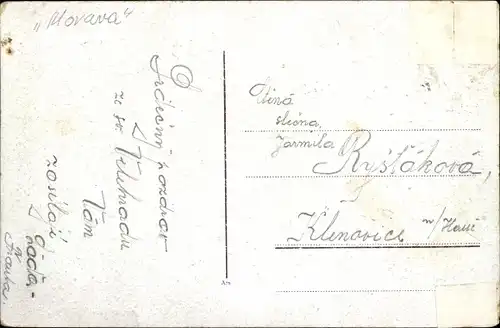 "Morava"
Srdečný pozdrav
ze sv. Velehradu
Vám
zasílají
Ctěná
slečna
Jarmila
Ryšťáková,
Klenovice n/Hané